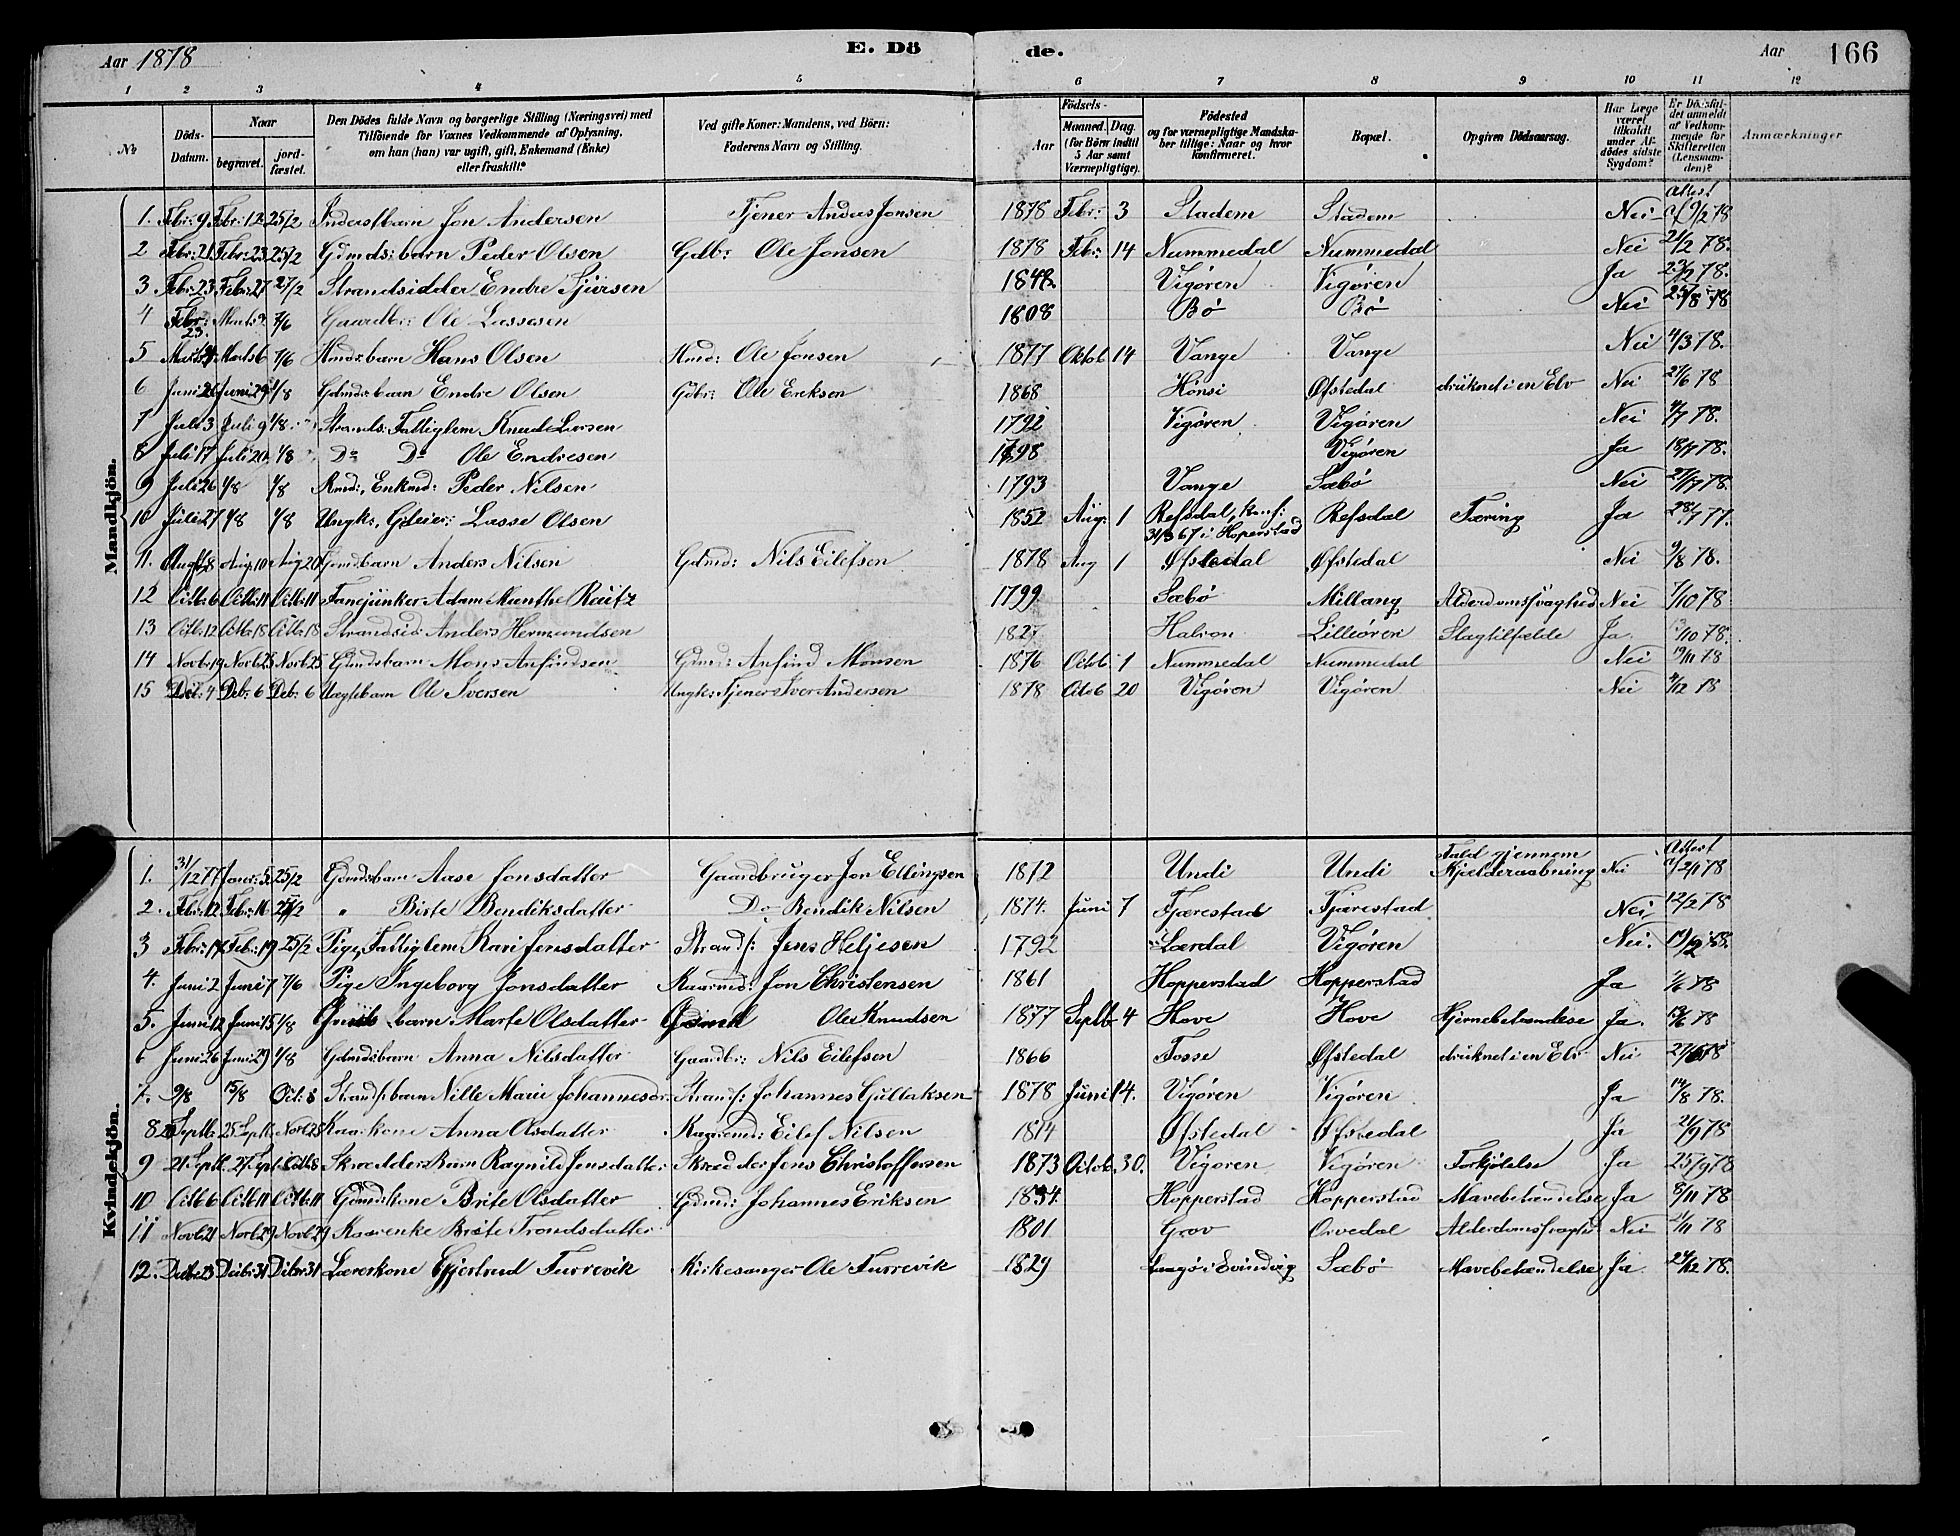 Aar 1878 E. Dö de. Aar 166
1 2 3 4 5 6 7 8 9 10 11 12
No Döds-Datum. Naar begravet. jord-fæstet. Den Dödes fulde Navn og borgerlige Stilling (Næringsvei) med Tilföiende for Voxnes Vedkommende af Oplysning, om han (hun) var ugift, gift, Enkemand (Enke) eller fraskilt. Ved gifte Koner: Mandens, ved Börn: Faderens Navn og Stilling. Födsels- Aar Maaned. Dag. (for Börn indtil 5 Aar samt Værnepligtige). Födested og for værnepligtige Mandskaber tillige: Naar og hvor konfirmeret. Bopæl. Opgiven Dödsaarsag. Har Læge været tilkaldt under Afdödes sidste Sygdom? Er Dödsfaldet anmeldt af Vedkommende for Skifteretten (Lensmanden)? Anmærkninger
Mandkjön.
Attest
1. Febr: 9 Febr: 12 25/2 Inderstbarn Jon Andersen Tjener Anders Jonsen 1878 Febr: 3 Stadem Stadem Nei 9/2 78
2 Febr: 21 Febr: 23 25/2 Gdmdsbarn Peder Olsen Gdb: Ole Jonsen 1878 Febr: 14 Nummedal Nummedal Nei 21/2 78.
3. Febr: 23 Febr: 27 27/2 Strandsidder Endre Sjursen 1842 Vigøren Vigøren Ja 23/2 78.
4 Febr: 23. Marts 2 7/6 Gaardbr: Ole Lassesen 1808 Bø Bø Nei
5 Marts 4 Marts 6 7/6 Hmdsbarn Hans Olsen Hmd: Ole Jonsen 1877 Oktob 14 Vange Vange Nei 4/3 78.
6 Juni 26 Juni 29 4/8 Gdmdsbarn Endre Olsen Gdbr: Ole Eriksen 1868 Hönsi Øfstedal druknet i en Elv Nei 27/6 78
7 Juli 3 Juli 9 4/8 Strands: Fattiglem Knud Larsen 1792 Vigøren Vigøren Nei 4/7 78.
8 Juli 17 Juli 20 4/8 Do Do Ole Endresen 1798 Vigören Ja 18/7 78.
9 Juli 26 4/8 4/8 Kmd:, Enkmd: Peder Nilsen 1793 Vange Sæbö Nei 27/7 78.
10 Juli 27 4/8 4/8 Ungk:, Gdeier: Lasse Olsen 1852 Aug: 1 Refsdal, konf: 31/3 67 i Hoperstad Refsdal Tæring Ja 28/7 77.
11. Augst 8 Aug. 10 Aug 20 Gdmdsbarn Anders Nilsen Gdmd: Nils Eilefsen 1878 Aug 1 Øfstedal Øfstedal Nei 9/8 78.
12 Octb: 6 Octb: 11 Octb: 11 Fanejunker Adam Munthe Rütz 1799 Sæbö Millang Alderdomssvaghed Nei 7/10 78
13 Octb: 12 Octb: 18 Octb: 18 Strandsid: Anders Hermundsen 1827 Halvon Lilleören Slagtilfelde Ja 13/10 78.
14 Novbr: 19 Novb: 25 Novb: 25 Gdmdsbarn Mons Anfindsen Gdmd: Anfind Monsen 1876 Octob 1 Nummedal Nummedal Nei 19/11 78
15 Deb: 4 Deb: 6 Deb: 6 Uægtebarn Ole Iversen Ungk: Tjener Iver Andersen 1878 Octob 20 Vigøren Vigøren Nei 4/12 78
Kvindekjön.
Attest
1. 31/12 77 Janr: 5 25/2 Gdmdsbarn Aase Jonsdatter Gaardbruger Jon Ellingsen 1872 Undi Undi Fald gjennem Kjelderaabning Nei 2/1 78
2. Febr: 12 Febr: 16 25/2 " Birte Bendiksdatter Do Bendik Nilsen 1874. Juni 7 Tjærestad Tjærestad Nei 12/2 78
3 Febr: 17 Febr: 19 25/2 Pige, Fattiglem Kari Jensdatter Strands: Jens Heljesen 1792 Lærdal Vigøren Nei.
4. Juni 2 Juni 7 7/6 Pige Ingeborg Jonsdatter Kaarmd: Jon Christensen 1861 Hopperstad Hopperstad Ja 4/6 78
5. Juni 12 Juni 15 4/8 barn Marte Olsdatter Gdmd Ole Knudsen 1877 Septb 4 Hove Hove Hjernebetændelse Ja. 13/6 78
6 Juni 26 Juni 29 4/8 Gdmdsbarn Anna Nilsdatter Gaardbr: Nils Eilefsen 1866 Fosse Øfstedal druknet i en Elv Nei 27/6 78
7. 9/8 15/8 Oct: 8 Strands: barn Nille Marie Johannesdr: Strands: Johannes Gullaksen 1878 Juni 14. Vigøren Vigøren Ja 14/8 78.
8 20 Septb: 25 Septb, Novb 25 Kaarkone Anna Olsdatter Kaarmd: Eilef Nilsen 1814 Øfstedal Øfstedal Ja 21/9 78
9 21 Septb. 27 Sept. Octb 8 Skrædderbarn Ragnild Jensdatter Skrædder Jens Christoffersen 1873 Octob. 30. Vigøren Vigøren Forkjølelse Ja 25/9 78
10 Octb 6 Octb: 11 Octb: 11 Gdmdskone Brite Olsdatter Gdmd: Johannes Eriksen 1834 Hopperstad Hopperstad Mavebetændelse Ja 8/11 78
11 Novb: 21 Novb: 29 Novb: 29 Kaarenke Brite Trondsdatter 1801 Grov Orvedal Alderdomssvaghed Nei 21/11 78
12. Decbr 23 Decbr 31 Decbr 31 Lærerkone Gjertrud Turrevik Kirkesanger Ole Turrevik 1829 i Evindvig Sæbö Mavebetændelse Ja 24/12 78.